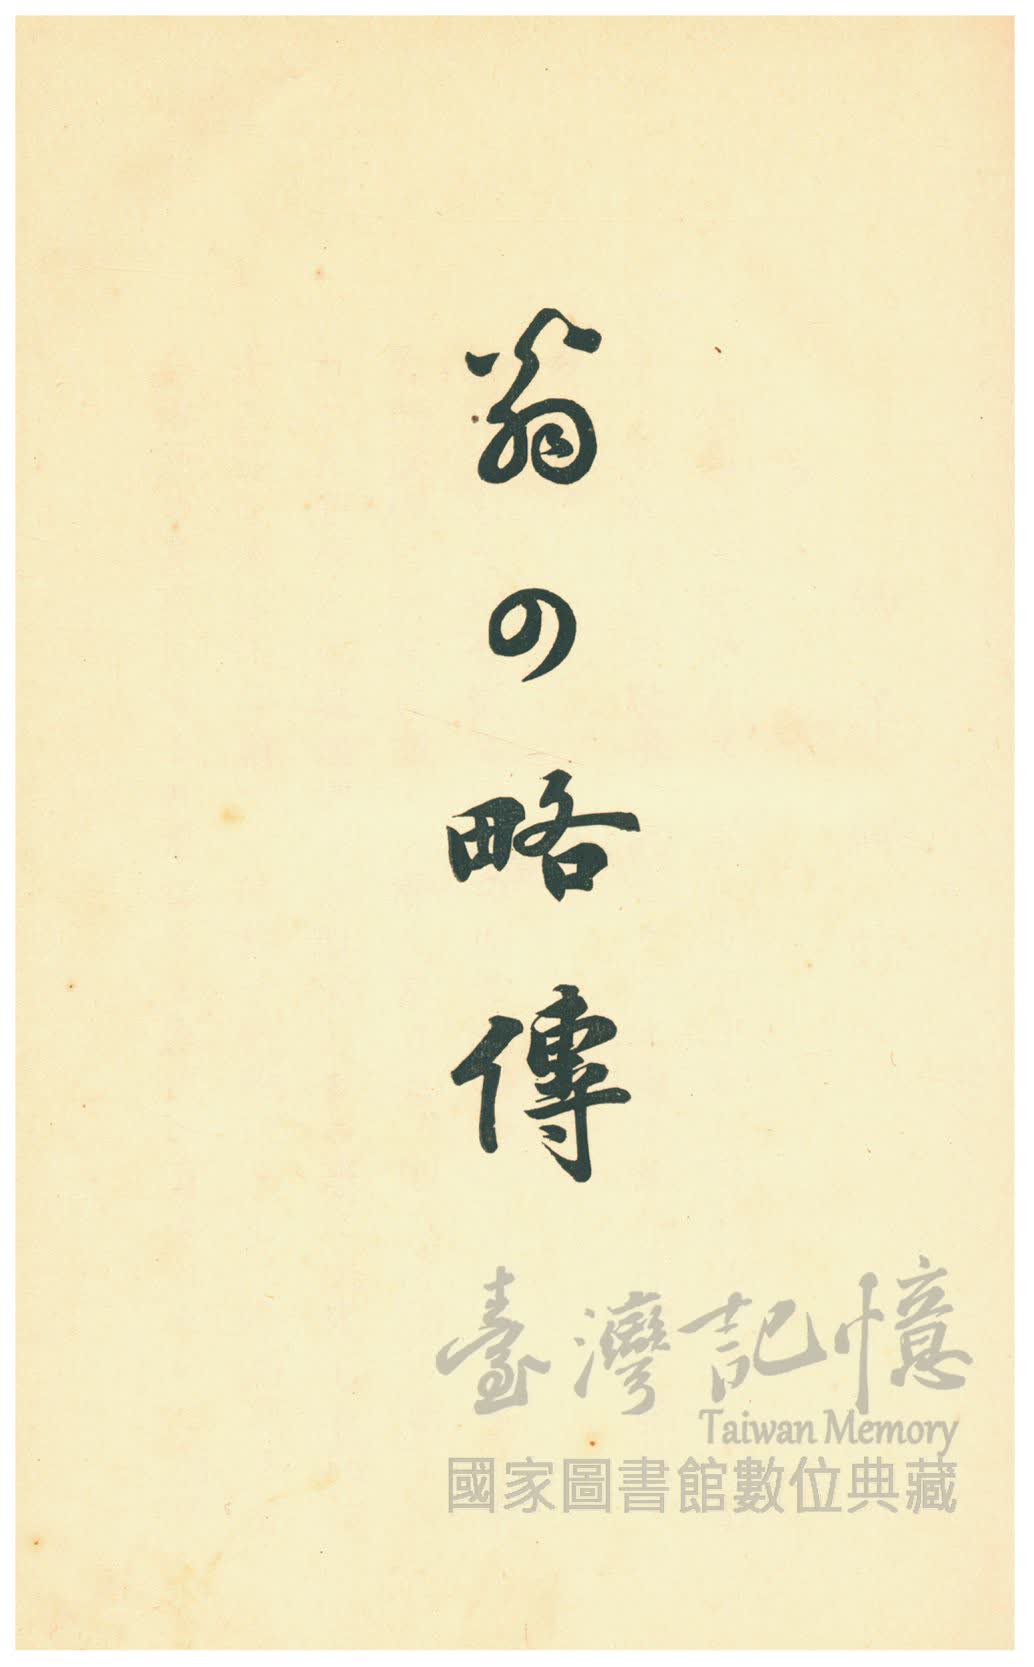 翁の略傳
臺灣記憶
Taiwan Memory
國家圖書館數位典藏